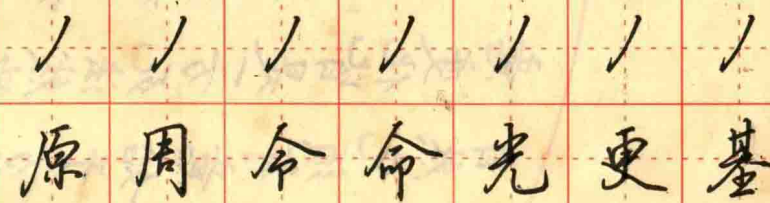 丿丿丿丿丿丿丿
原周令命光更基